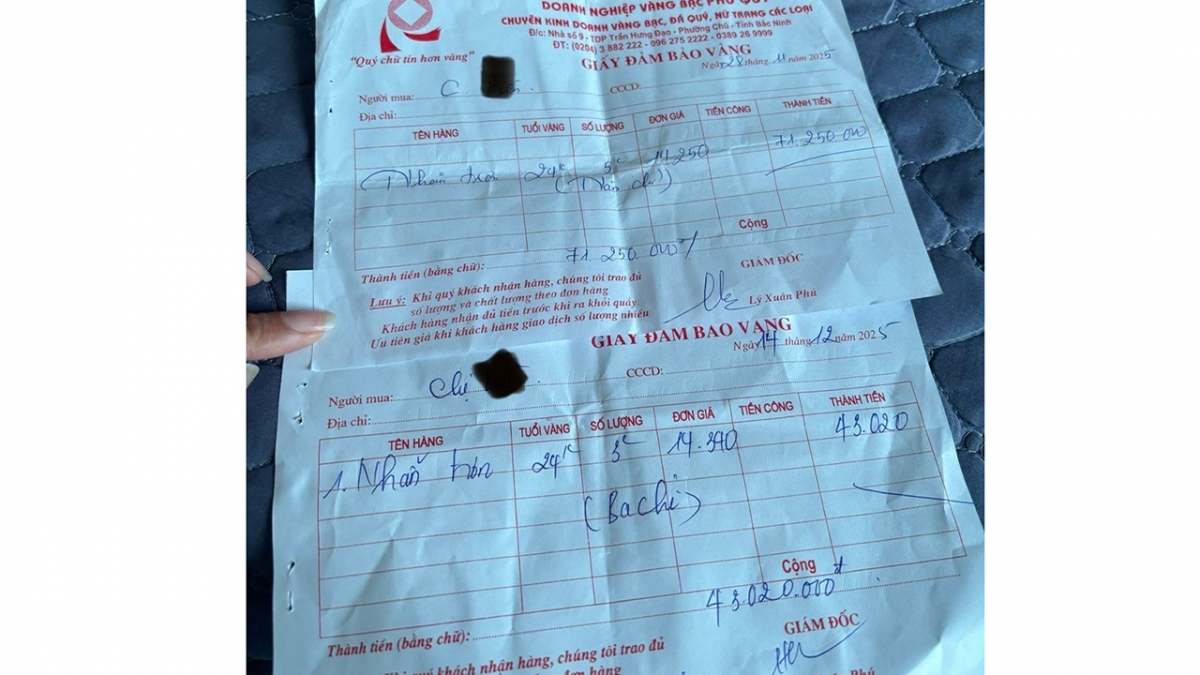 DOANH NGHIỆP VÀNG BẠC PHÚ QUÝ
CHUYÊN KINH DOANH VÀNG BẠC, ĐÁ QUÝ, NỮ TRANG CÁC LOẠI
Đ/c: Nhà số 9 - TDP Trần Hưng Đạo - Phường Chũ - Tỉnh Bắc Ninh
ĐT: (0204) 3 882 222 - 096 275 2222 - 0389 26 9999
"Quý chữ tín hơn vàng"
GIẤY ĐẢM BẢO VÀNG
Ngày 28 tháng 11 năm 2025
Người mua: C. CCCD:
Địa chỉ:
TÊN HÀNG TUỔI VÀNG SỐ LƯỢNG ĐƠN GIÁ TIỀN CÔNG THÀNH TIỀN
Nhẫn tròn 24k 5c 14.250 71.250.000
(Năm chỉ)
Cộng
71.250.000
Thành tiền (bằng chữ):
GIÁM ĐỐC
Lưu ý: Khi quý khách nhận hàng, chúng tôi trao đủ
số lượng và chất lượng theo đơn hàng
Khách hàng nhận đủ tiền trước khi ra khỏi quầy
Ưu tiên giá khi khách hàng giao dịch số lượng nhiều
Lý Xuân Phú
GIẤY ĐẢM BẢO VÀNG
Ngày 14 tháng 12 năm 2025
Người mua: Chị CCCD:
Địa chỉ:
TÊN HÀNG TUỔI VÀNG SỐ LƯỢNG ĐƠN GIÁ TIỀN CÔNG THÀNH TIỀN
1. Nhẫn tròn 24k 3c 14.340 43.020
(Ba chỉ)
Cộng
43.020.000đ
Thành tiền (bằng chữ):
GIÁM ĐỐC
quý khách nhận hàng, chúng tôi trao đủ
đơn hàng
Phú